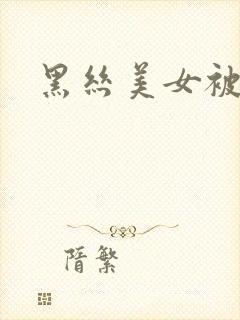 黑丝美女被
隋繁